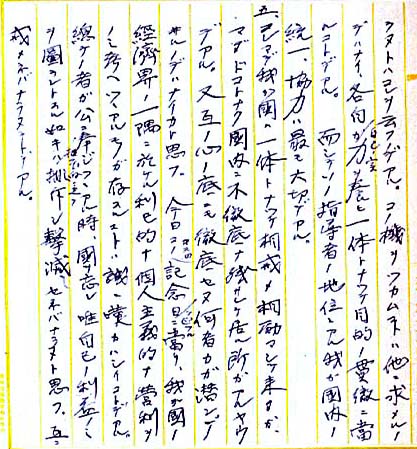 ラヌトハコレヲ云フノデアル。コノ機ヲツカムコトハ他ニ求メルノ
デハナイ、各自ガ力ヲ養ヒ一体トナッテ目的ノ貫徹ニ当
ルコトデアル。而シテソノ指導者ノ地位ニアル我ガ国内ノ
統一、協力ハ最モ大切デアル。
五、己ニ我ガ国ハ一体トナッテ相戒メ相励マシテ来タガ、
マダドコトナク国内ニ不徹底ナ残サレタ居ル所ガアルヤウ
デアル。又互ノ心ノ底ニモ徹底セヌ何者カガ潜ンデ
ヰルノデハナイカト思フ。今日コノ記念日ニ当リ、我ガ国ノ
経済界ノ一隅ニ於ケル利己的ナ個人主義的ナ営利ヲ
ノミ考ヘツヽアルモノガ存スルコトハ誠ニ嘆カハシイコトデアル。
総ケノ者ガ公ニ奉ジツヽアル時、国ヲ忘レ唯自己ノ利益ノミ
ヲ図ラントスル如キハ排斥シ撃滅セネバナラヌト思フ。互ニ
戒メネバナラヌコトデアル。